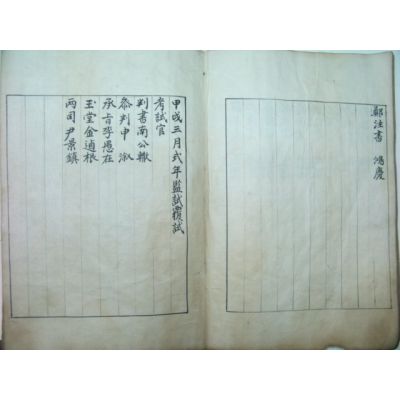 鄭注書 鴻慶
甲戌三月式年監試覆試
考試官
判書南公轍
參判申溆
承旨李愚在
玉堂金逌根
兩司尹景鎭